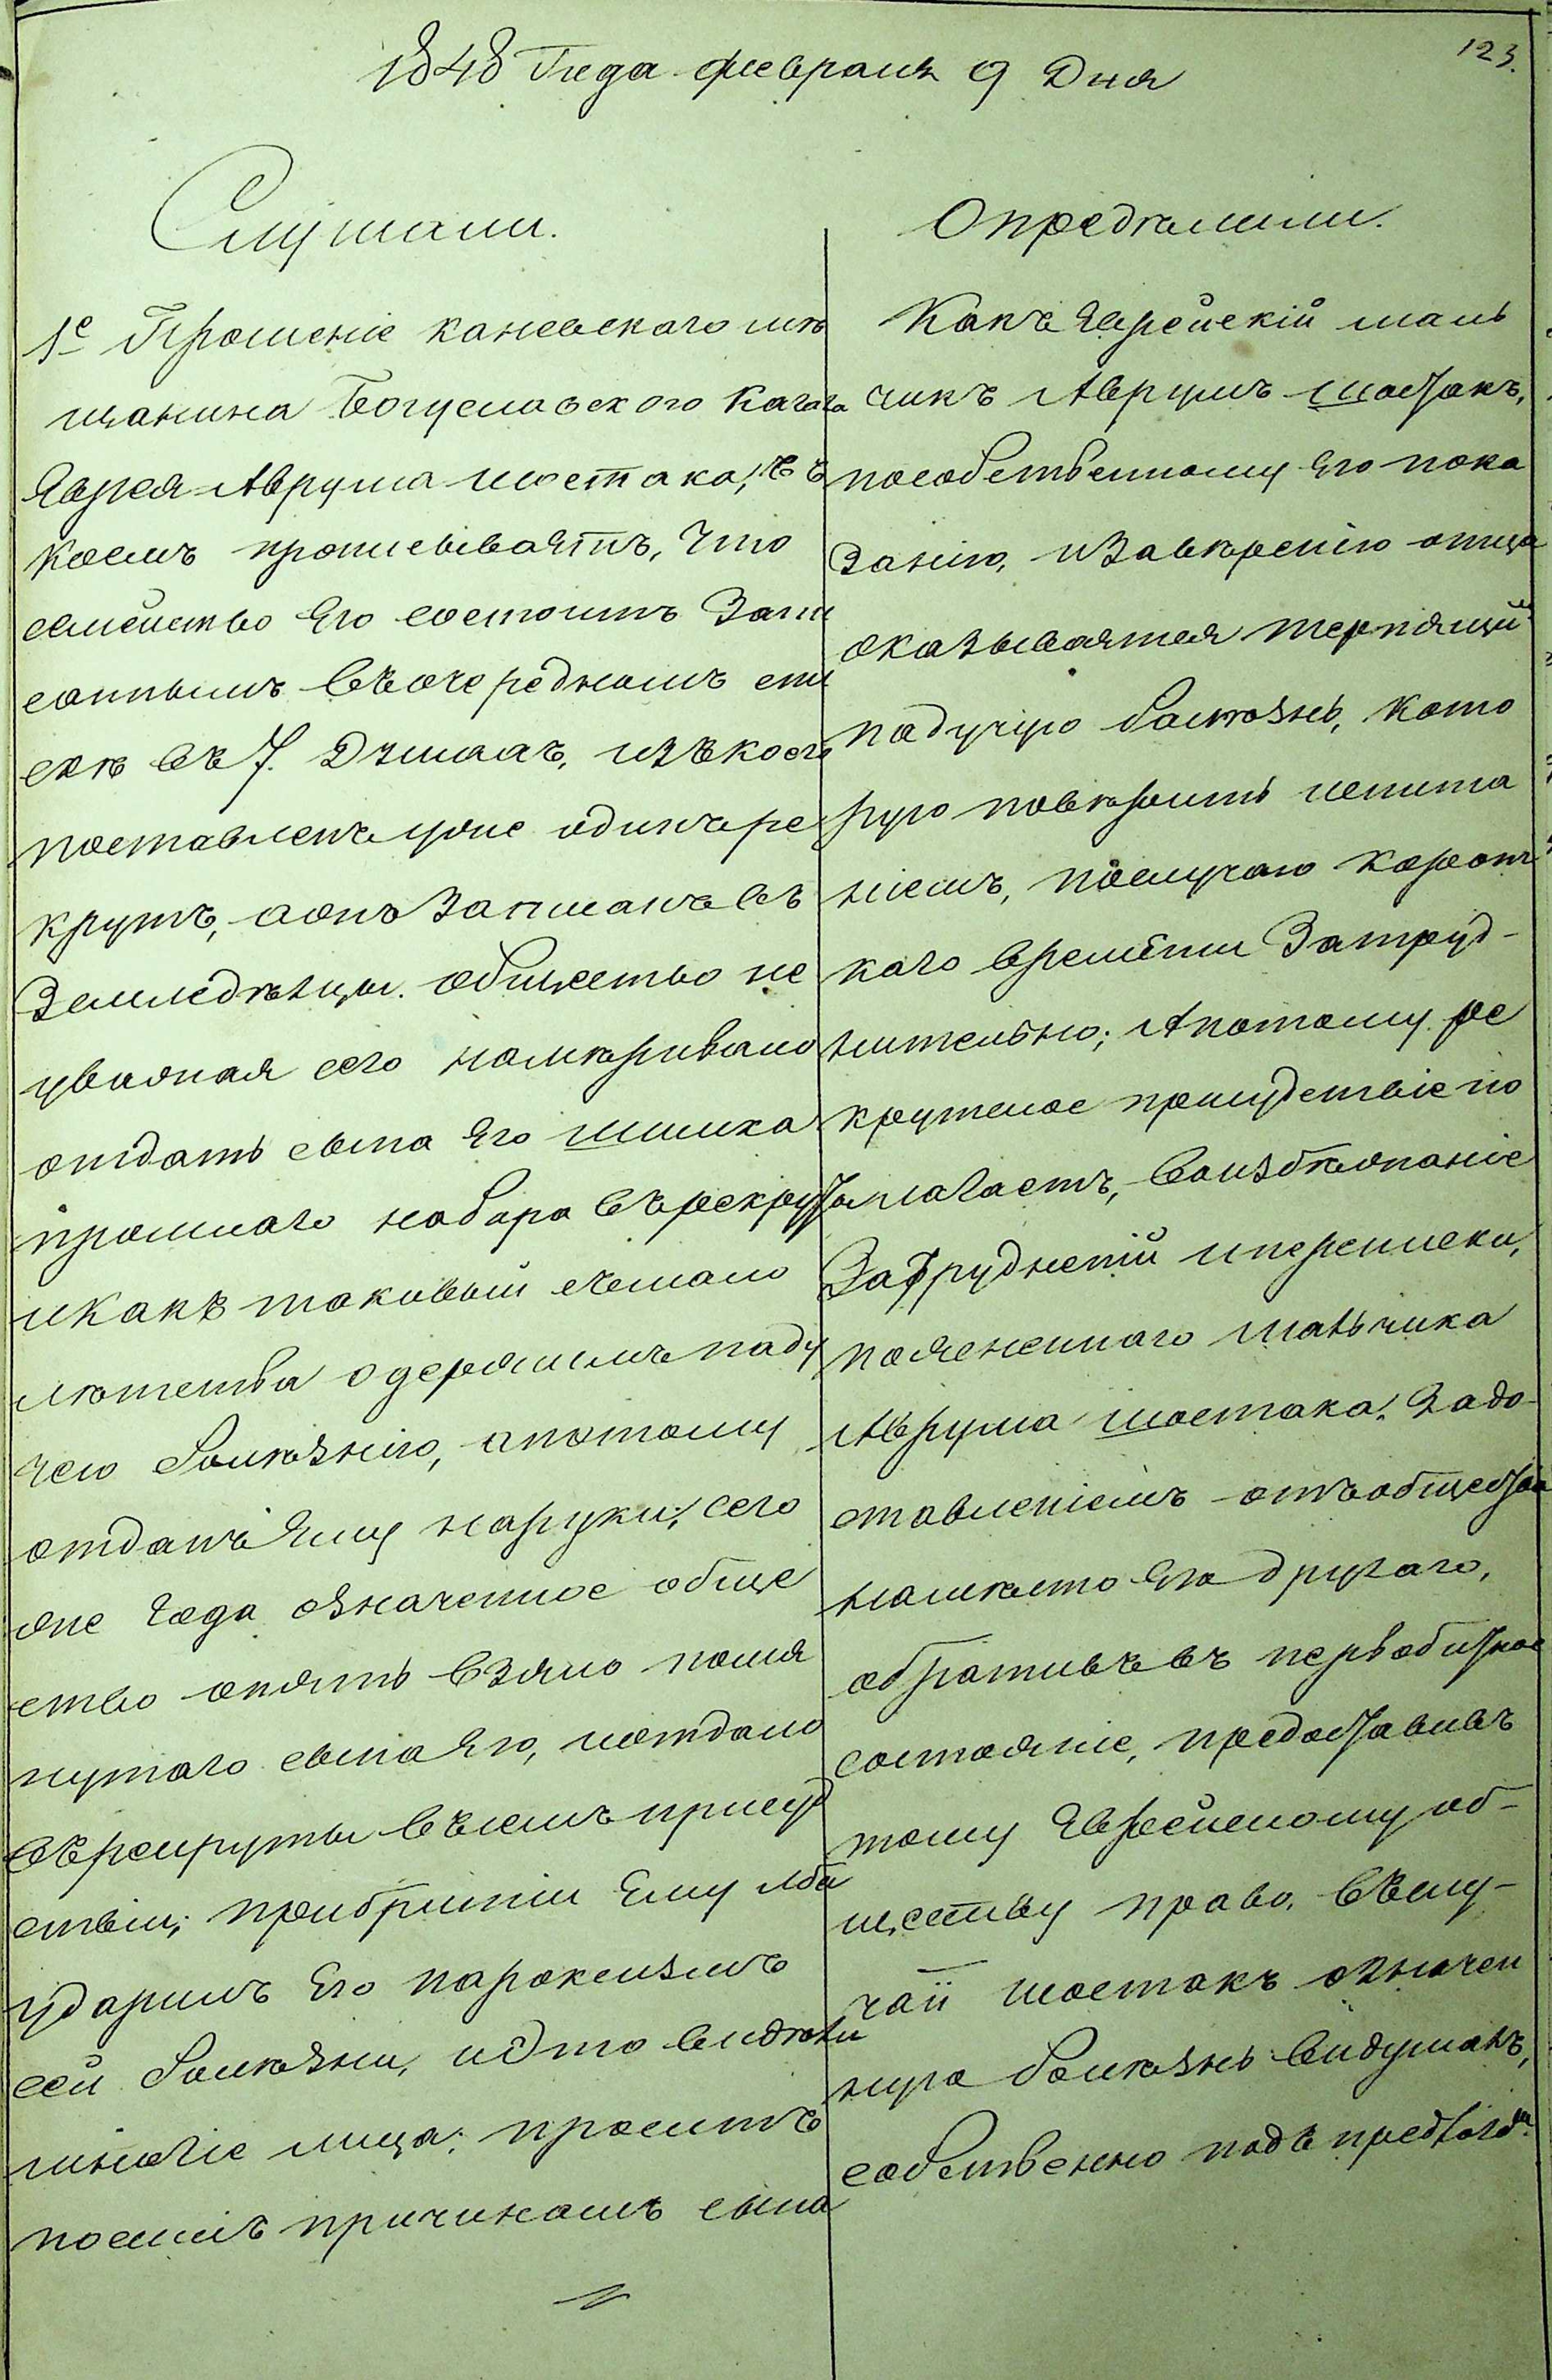 123.
1848 Года февраля 9 Дня
Слушали.
1е Прошеніе каневскаго мѣ
щанина Богуславского Кагала
Еврея Аврума шостака, въ
коемъ прописываетъ, что
семейство Его состоитъ Запи
саннымъ въочередномъ спи
скѣ въ 7. Душахъ, изъкоего
поставленъ уже одинъ ре
крутъ, аонъ Записанъ въ
Земледѣльцы. общество не
уважая сего намѣривало
отдать сына Его шмика
прошлаго набора въ рекруты
икакъ таковый съмало
лѣтства одержимъ паду
чею болѣзнію, апотому
отданъ Ему наруки; сего
же Года означенное обще
ство опять взяло помя
нутаго сына Его, иотдало
въ рекруты въ семъ присуд
ствіи; приобритіи Ему лба
ударилъ Его пароксизмъ
сей болѣзни, иэто видѣли
многіе лица; проситъ
посимъ причинамъ сына
Опредѣлили.
Какъ Еврейскій маль
чикъ Аврумъ шостакъ,
пособственному Его пока
занію, иЗавѣренію отца
оказывается терпящій
падучую болѣзнь, кото
рую повѣрить испита
ніемъ, послучаю корот
каго времени Затруд-
нительно; Апотому ре
крутское присудствіе по
лагаетъ, воизбѣжаніе
Затрудненій ипереписки,
поясненнаго мальчика
Аврума шостака, Задо-
ставленіемъ отъобщества
намѣсто Его другаго,
обративъ въ первобитное
состояніе, предоставивъ
тому Еврейскому об-
ществу право, въслу-
чаи шостакъ означен
ную болѣзнь видумалъ,
собственно подъ предлогомъ